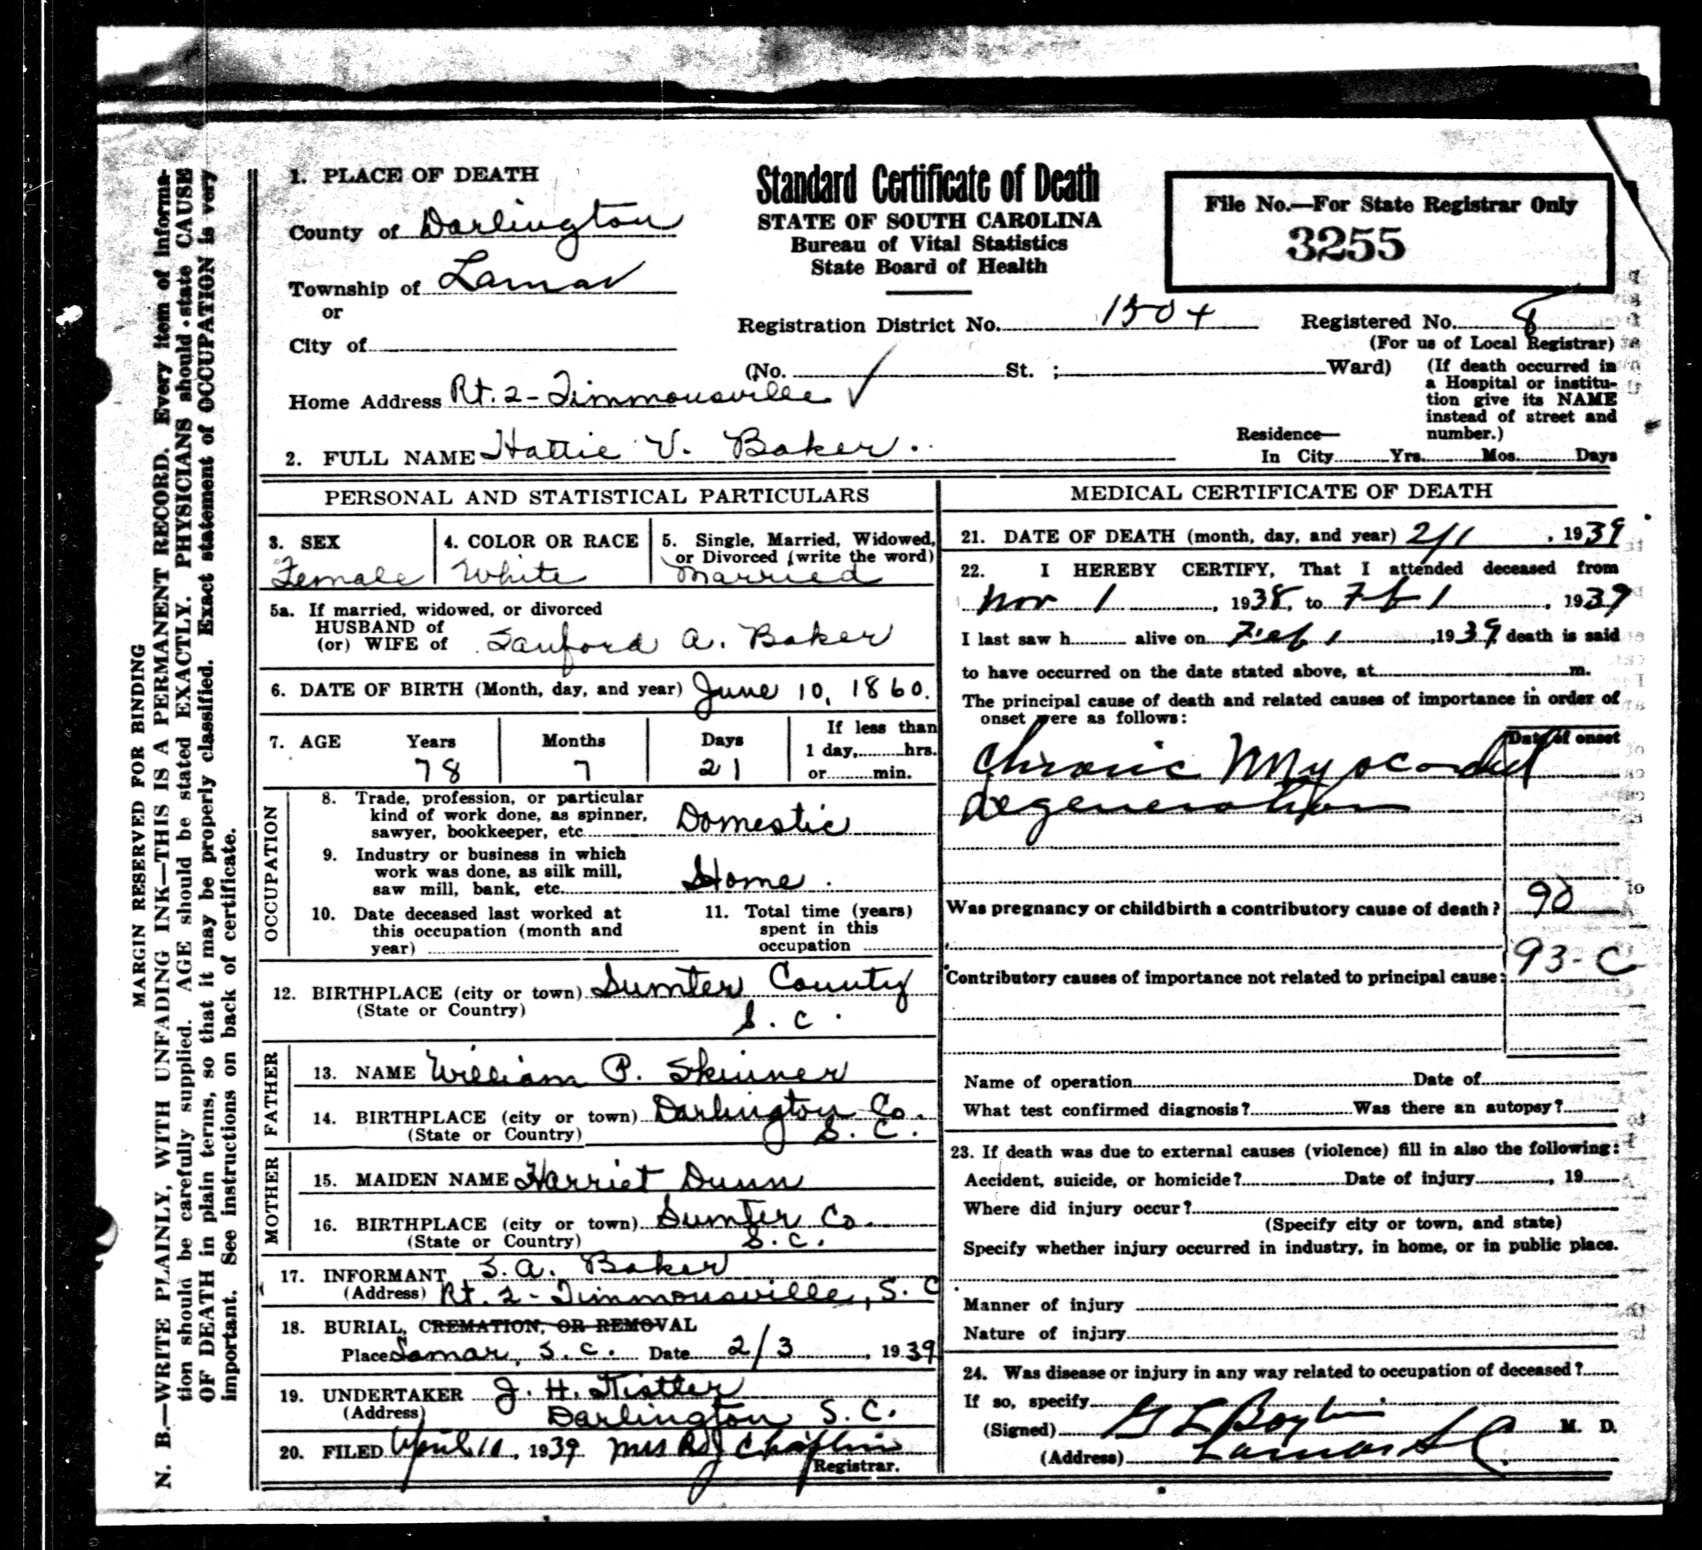 MARGIN RESERVED FOR BINDING
N. B.—WRITE PLAINLY, WITH UNFADING INK—THIS IS A PERMANENT RECORD. Every item of informa-
tion should be carefully supplied. AGE should be stated EXACTLY. PHYSICIANS should state CAUSE
OF DEATH in plain terms, so that it may be properly classified. Exact statement of OCCUPATION is very
important. See instructions on back of certificate.
1. PLACE OF DEATH
County of Darlington
Township of Lamar
or
City of
Home Address Rt. 2 - Timmonsville ✓
Standard Certificate of Death
STATE OF SOUTH CAROLINA
Bureau of Vital Statistics
State Board of Health
File No.—For State Registrar Only
3255
Registration District No. 1504
Registered No. 8
(For us of Local Registrar)
(No. St. ; Ward)
(If death occurred in
a Hospital or institu-
tion give its NAME
instead of street and
number.)
2. FULL NAME Hattie V. Baker.
Residence—
In City Yrs. Mos. Days
PERSONAL AND STATISTICAL PARTICULARS
3. SEX
Female
4. COLOR OR RACE
White
5. Single, Married, Widowed,
or Divorced (write the word)
Married
5a. If married, widowed, or divorced
HUSBAND of
(or) WIFE of Sanford A. Baker
6. DATE OF BIRTH (Month, day, and year) June 10, 1860.
7. AGE Years Months Days If less than
1 day, hrs.
78 7 21 or min.
OCCUPATION
8. Trade, profession, or particular
kind of work done, as spinner,
sawyer, bookkeeper, etc. Domestic
9. Industry or business in which
work was done, as silk mill,
saw mill, bank, etc. Home.
10. Date deceased last worked at
this occupation (month and
year)
11. Total time (years)
spent in this
occupation
12. BIRTHPLACE (city or town) Sumter County
(State or Country) S. C.
FATHER
13. NAME William P. Skinner
14. BIRTHPLACE (city or town) Darlington Co.
(State or Country) S. C.
MOTHER
15. MAIDEN NAME Harriet Dunn
16. BIRTHPLACE (city or town) Sumter Co.
(State or Country) S.C.
17. INFORMANT S. A. Baker
(Address) Rt. 2 - Timmonsville, S. C.
18. BURIAL, CREMATION, OR REMOVAL
Place Lamar, S. C. Date 2/3, 1939
19. UNDERTAKER J. H. Kistler
(Address) Darlington S. C.
20. FILED April 10, 1939 Mrs R J Chaplin
Registrar.
MEDICAL CERTIFICATE OF DEATH
21. DATE OF DEATH (month, day, and year) 2/1, 1939
22. I HEREBY CERTIFY, That I attended deceased from
Nov 1, 1938, to Feb 1, 1939
I last saw h alive on Feb 1, 1939 death is said
to have occurred on the date stated above, at m.
The principal cause of death and related causes of importance in order of
onset were as follows:
Date of onset
Chronic Myocardial
degeneration
90
Was pregnancy or childbirth a contributory cause of death?
93-C
Contributory causes of importance not related to principal cause:
Name of operation Date of
What test confirmed diagnosis? Was there an autopsy?
23. If death was due to external causes (violence) fill in also the following:
Accident, suicide, or homicide? Date of injury , 19
Where did injury occur?
(Specify city or town, and state)
Specify whether injury occurred in industry, in home, or in public place.
Manner of injury
Nature of injury
24. Was disease or injury in any way related to occupation of deceased?
If so, specify
(Signed) G L Boykin M. D.
(Address) Lamar S C